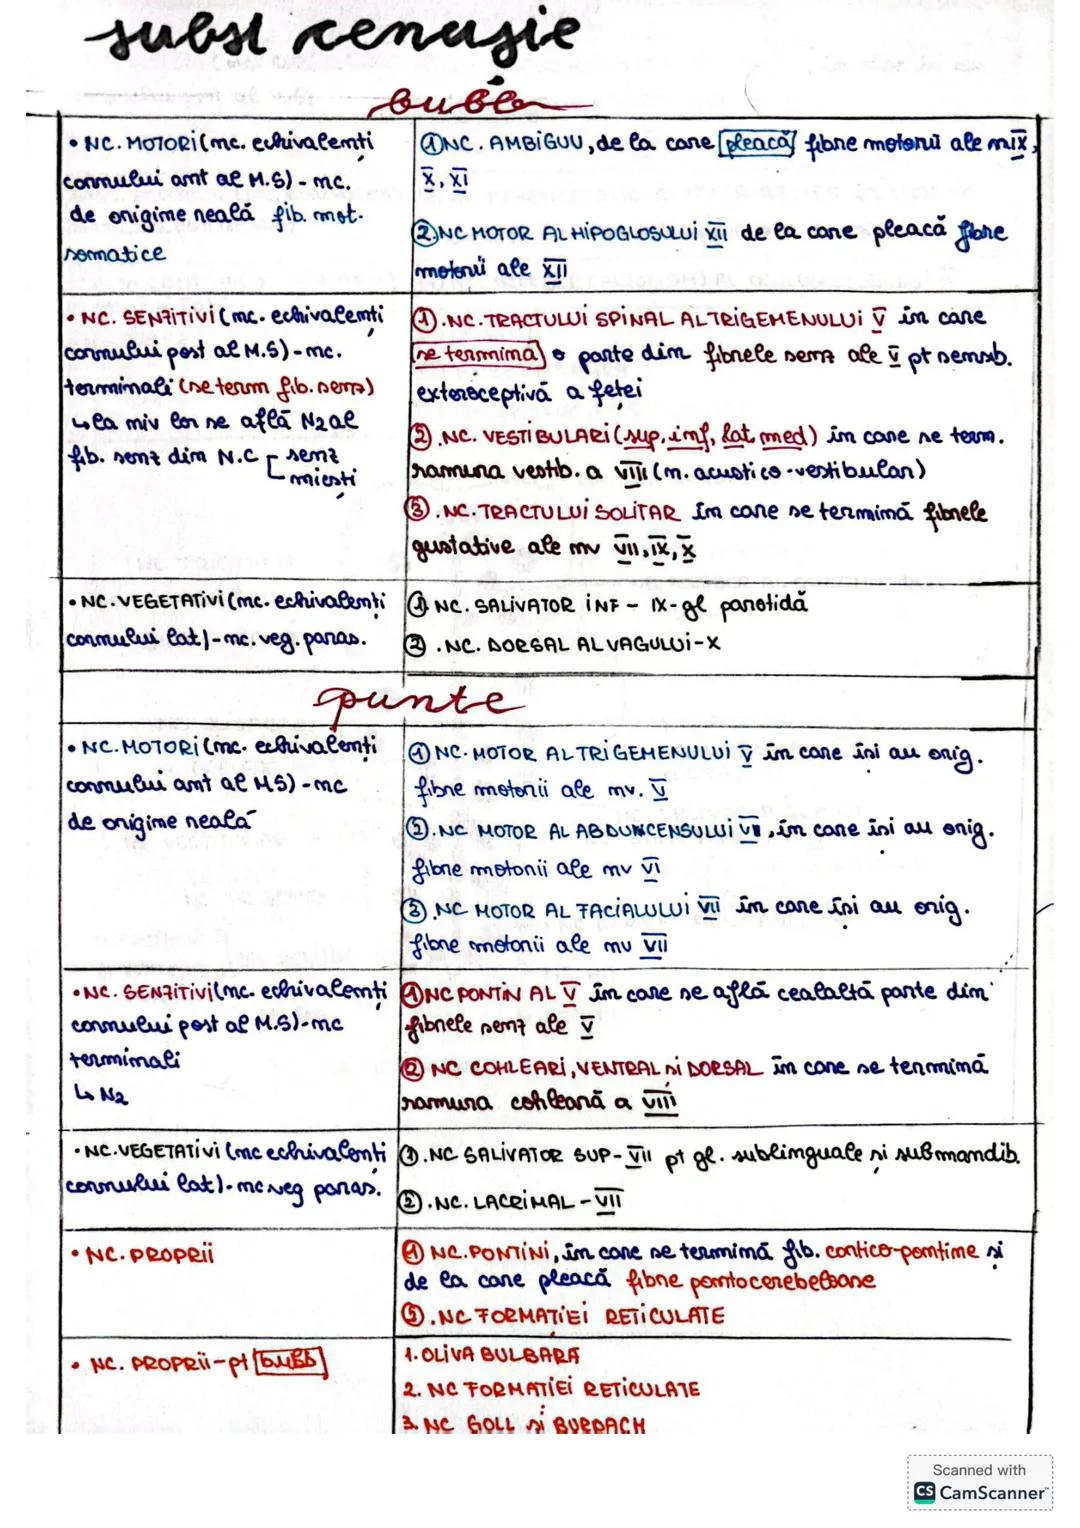 subst cenușie
bulb
• NC. MOTORI (nc. echivalenți
cornului ant al M.S) - nc.
de origine reală fib. mot.
somatice
① NC. AMBIGUU, de la care pleacă fibre motorii ale n IX,
X, XI
② NC MOTOR AL HIPOGLOSULUI XII de la care pleacă fibre
motorii ale XII
• NC. SENZITIVI (nc. echivalenți
cornului post al M.S) - nc.
terminali (se term fib. senz)
↳ la niv lor se află N2 al
fib. senz din N.C senz
miești
① .NC. TRACTULUI SPINAL AL TRIGEMENULUI V în care
se termină o parte din fibrele senz ale V pt sensib.
exteroceptivă a feței
② .NC. VESTIBULARI (sup, inf, lat med) în care se term.
ramura vestib. a VIII (n. acustico-vestibular)
③ .NC. TRACTULUI SOLITAR în care se termină fibrele
gustative ale nv VII, IX, X
• NC. VEGETATIVI (nc. echivalenți
cornului lat) - nc. veg. paras.
① NC. SALIVATOR INF - IX - gl parotidă
② .NC. DORSAL AL VAGULUI - X
punte
• NC. MOTORI (nc. echivalenți
cornului ant al MS) - nc
de origine reală
① NC. MOTOR AL TRIGEMENULUI V în care își au orig.
fibre motorii ale nv. V
② .NC MOTOR AL ABDUNCENSULUI VI, în care își au orig.
fibre motorii ale nv VI
③ .NC MOTOR AL FACIALULUI VII în care își au orig.
fibre motorii ale nv VII
• NC. SENZITIVI (nc. echivalenți
cornului post al M.S) - nc
terminali
↳ N2
① NC PONTIN AL V în care se află cealaltă parte din
fibrele senz ale V
② NC COHLEARI, VENTRAL și DORSAL în care se termină
ramura cohleară a VIII
• NC. VEGETATIVI (nc echivalenți
cornului lat) - nc veg paras.
① .NC SALIVATOR SUP - VII pt gl. sublinguale și submandib.
② .NC. LACRIMAL - VII
• NC. PROPRII
① NC. PONTINI, în care se termină fib. cortico-pontine și
de la care pleacă fibre pontocerebeloase
② .NC FORMAȚIEI RETICULATE
• NC. PROPRII - pt bulb
1. OLIVA BULBARA
2. NC FORMAȚIEI RETICULATE
3. NC GOLL și BURDACH
Scanned with
CS CamScanner